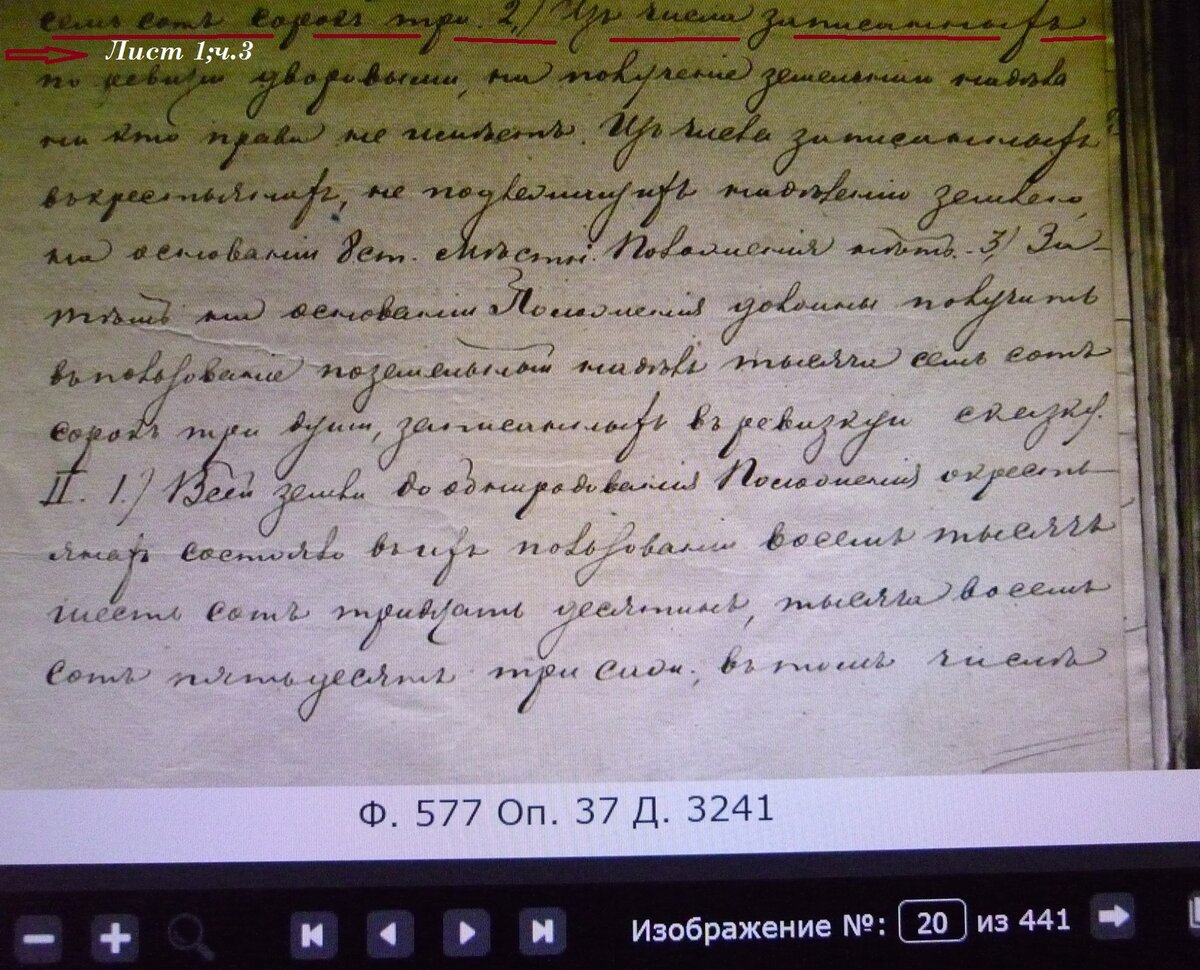 семь сотъ сорокъ три. 2.) Изъ числа записанныхъ
Лист 1;ч.3
по ревизіи дворовыми, на полученіе земельнаго надѣла
ни кто права не имѣетъ. Изъ числа записанныхъ
въ крестьянахъ, не подлежащихъ надѣленію землею,
на основаніи 8 ст. Мѣстн. Положенія нѣтъ. 3) За-
тѣмъ на основаніи Положенія должны получить
въ пользованіе поземельный надѣлъ тысяча семь сотъ
сорокъ три души, записанныхъ въ ревизкую сказку.
II. 1.) Всей земли до обнародованія Положенія о кресть-
янахъ состояло въ ихъ пользованіи восемь тысячъ
шесть сотъ тридцать десятинъ, тысяча восемь
сотъ пятьдесятъ три саж., въ томъ числѣ
Ф. 577 Оп. 37 Д. 3241
Изображение №: 20 из 441